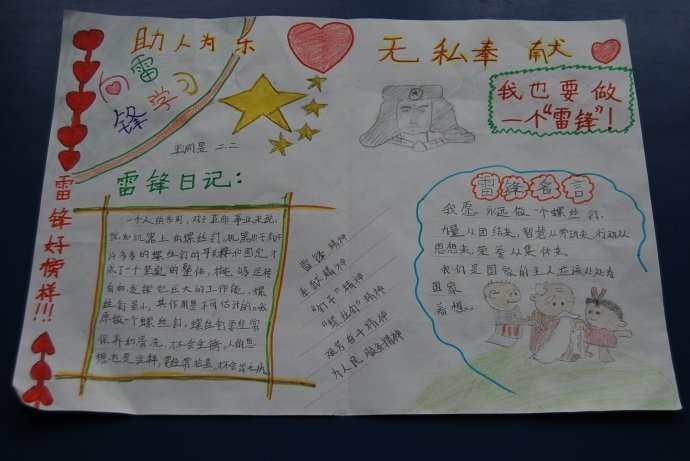 助人为乐
无私奉献
向雷
锋学习
我也要做
一个“雷锋”！
雷锋好榜样！！！
二二
雷锋日记：
一个人的作用，对于革命事业来说，
就如机器上的螺丝钉。机器由于有
许多多的螺丝钉的联接和固定，才
成了一个坚实的整体，才能够运转
自如，发挥它巨大的工作能。螺
丝钉虽小，其作用是不可估计的。我
愿做一个螺丝钉。螺丝钉要经常
保养和清洗，才不会生锈。人的思
想也是这样，要经常检查，才不会出毛病
雷锋精神
奉献精神
“钉子”精神
“螺丝钉”精神
艰苦奋斗精神
为人民服务精神
雷锋名言
我愿永远做一个螺丝钉。
力量从团结来，智慧从劳动来，行动从
思想来，荣誉从集体来。
我们是国家的主人应该处处为
国家
着想。